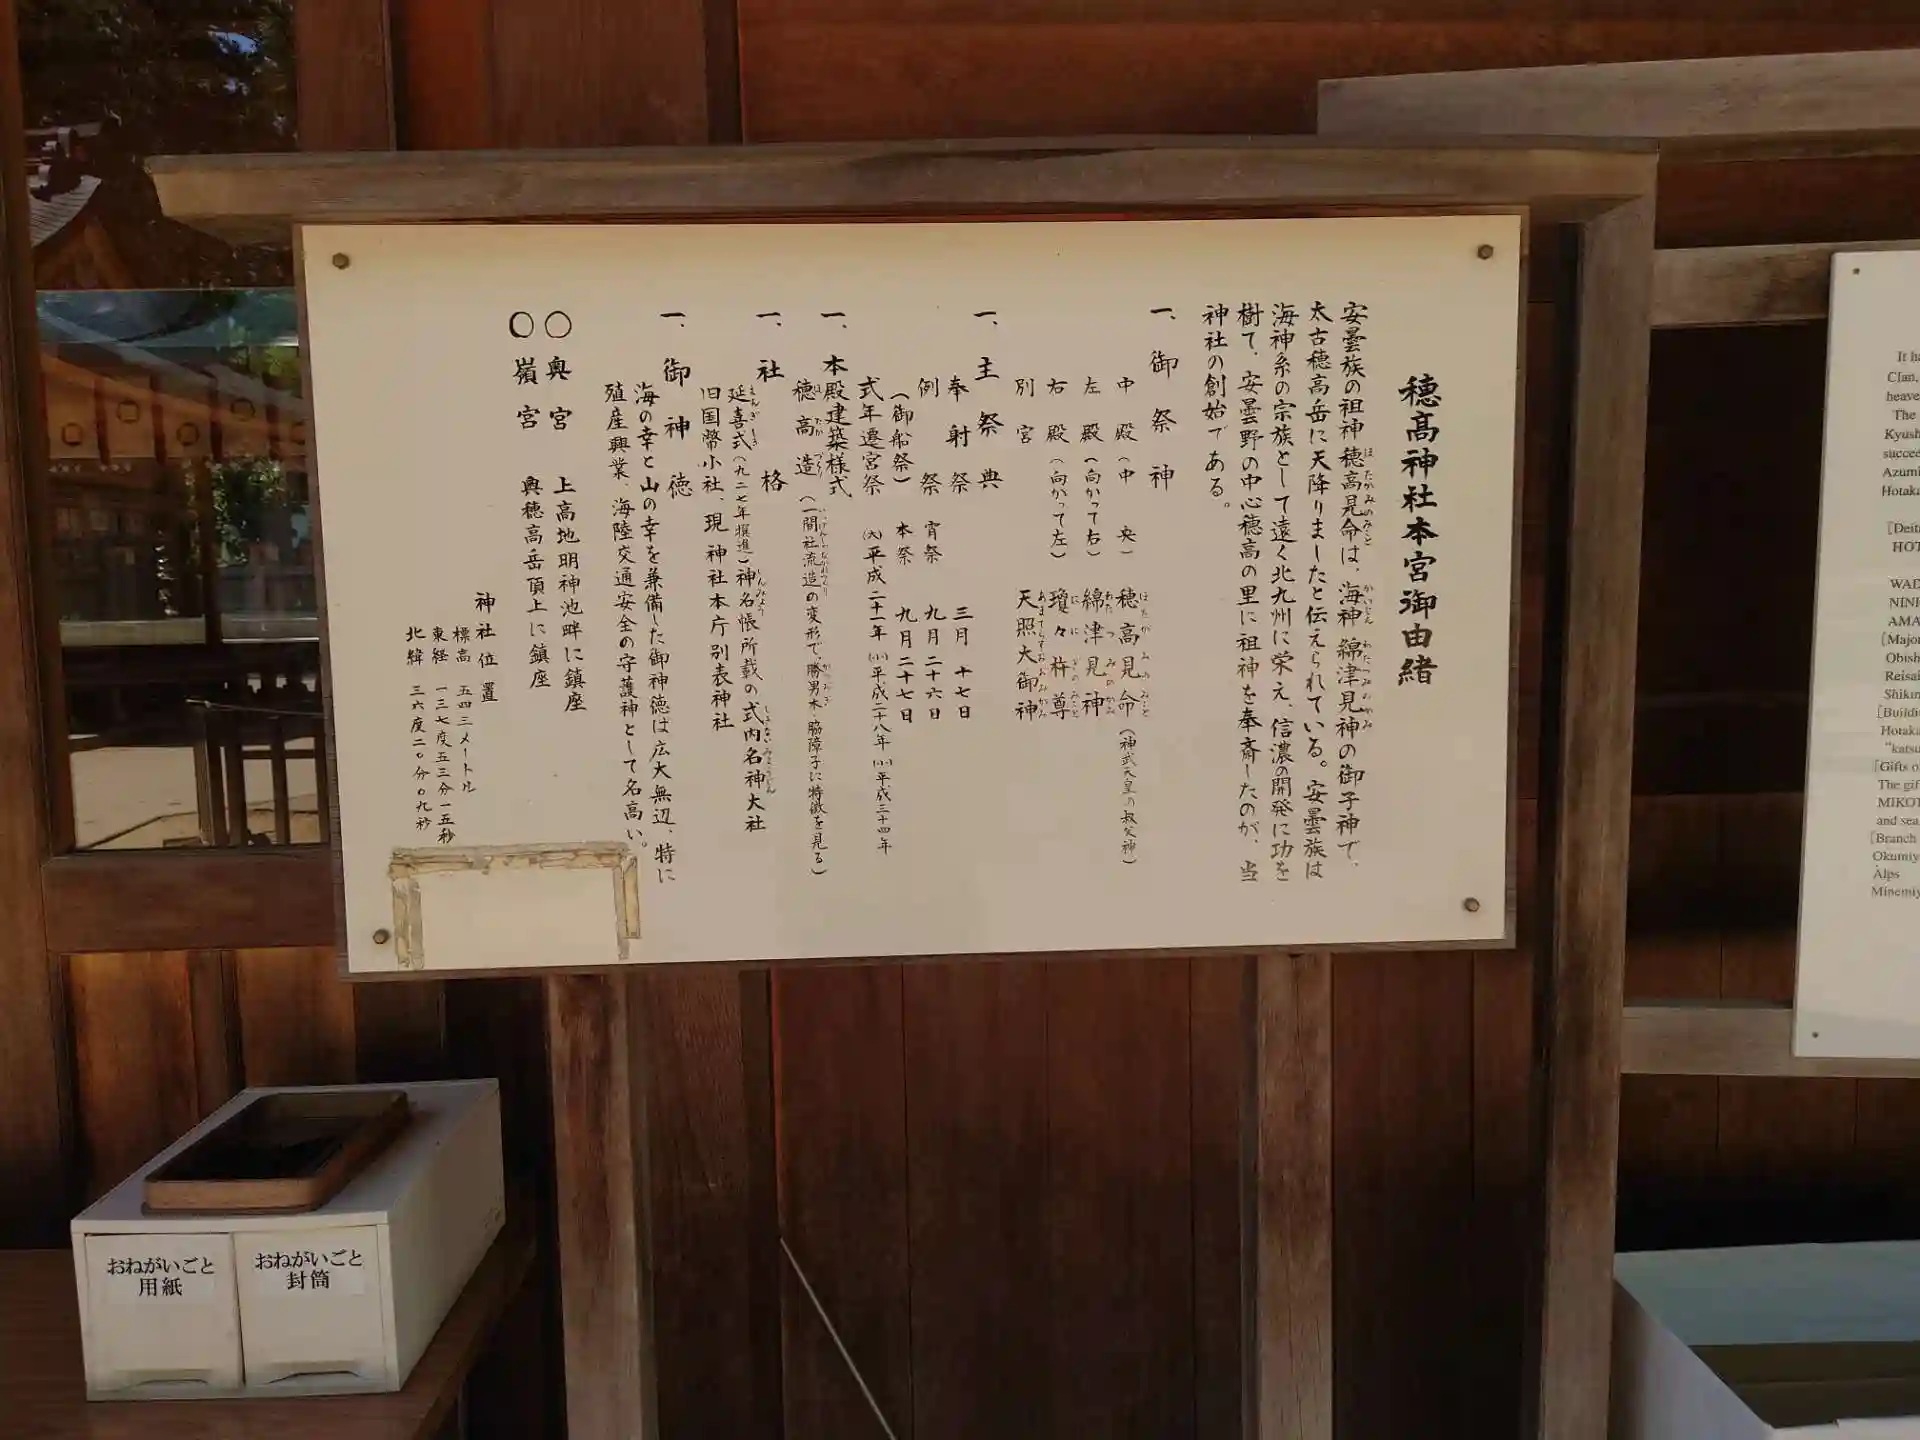 穂髙神社本宮御由緒
安曇族の祖神 穂高見命は、海神 綿津見神の御子神で、
太古穂高岳に天降りましたと伝えられている。安曇族は
海神系の宗族として遠く北九州に栄え、信濃の開発に功を
樹て、安曇野の中心穂高の里に祖神を奉斎したのが、当
神社の創始である。
一、御祭神
中殿(中央) 穂高見命(神武天皇の叔父神)
左殿(向かって右) 綿津見神
右殿(向かって左) 瓊々杵尊
別宮 天照大御神
一、主祭典
奉射祭 三月十七日
例祭 宵祭 九月二十六日
(御船祭) 本祭 九月二十七日
式年遷宮祭 (大)平成二十一年 (小)平成二十八年 (小)平成三十四年
一、本殿建築様式
穂高造(一間社流造の変形で、勝男木・脇障子に特徴を見る)
一、社格
延喜式(九二七年撰進)神名帳所載の式内名神大社
旧国幣小社、現神社本庁別表神社
一、御神徳
海の幸と山の幸を兼備した御神徳は広大無辺、特に
殖産興業、海陸交通安全の守護神として名高い。
○奥宮 上高地明神池畔に鎮座
○嶺宮 奥穂高岳頂上に鎮座
神社位置
標高 五四三メートル
東経 一三七度五三分一五秒
北緯 三六度二〇分〇九秒
おねがいごと
用紙
おねがいごと
封筒
It
Clan,
heave
The
Kyush
succee
Azumi
Hotaka
[Deit
HOT
WAD
NINI
AMA
[Major
Obish
Reisai
Shikin
[Buildin
Hotaka
"katsu
[Gifts o
The gif
MIKOT
and sea
[Branch
Okumiy
Alps
Minemiy